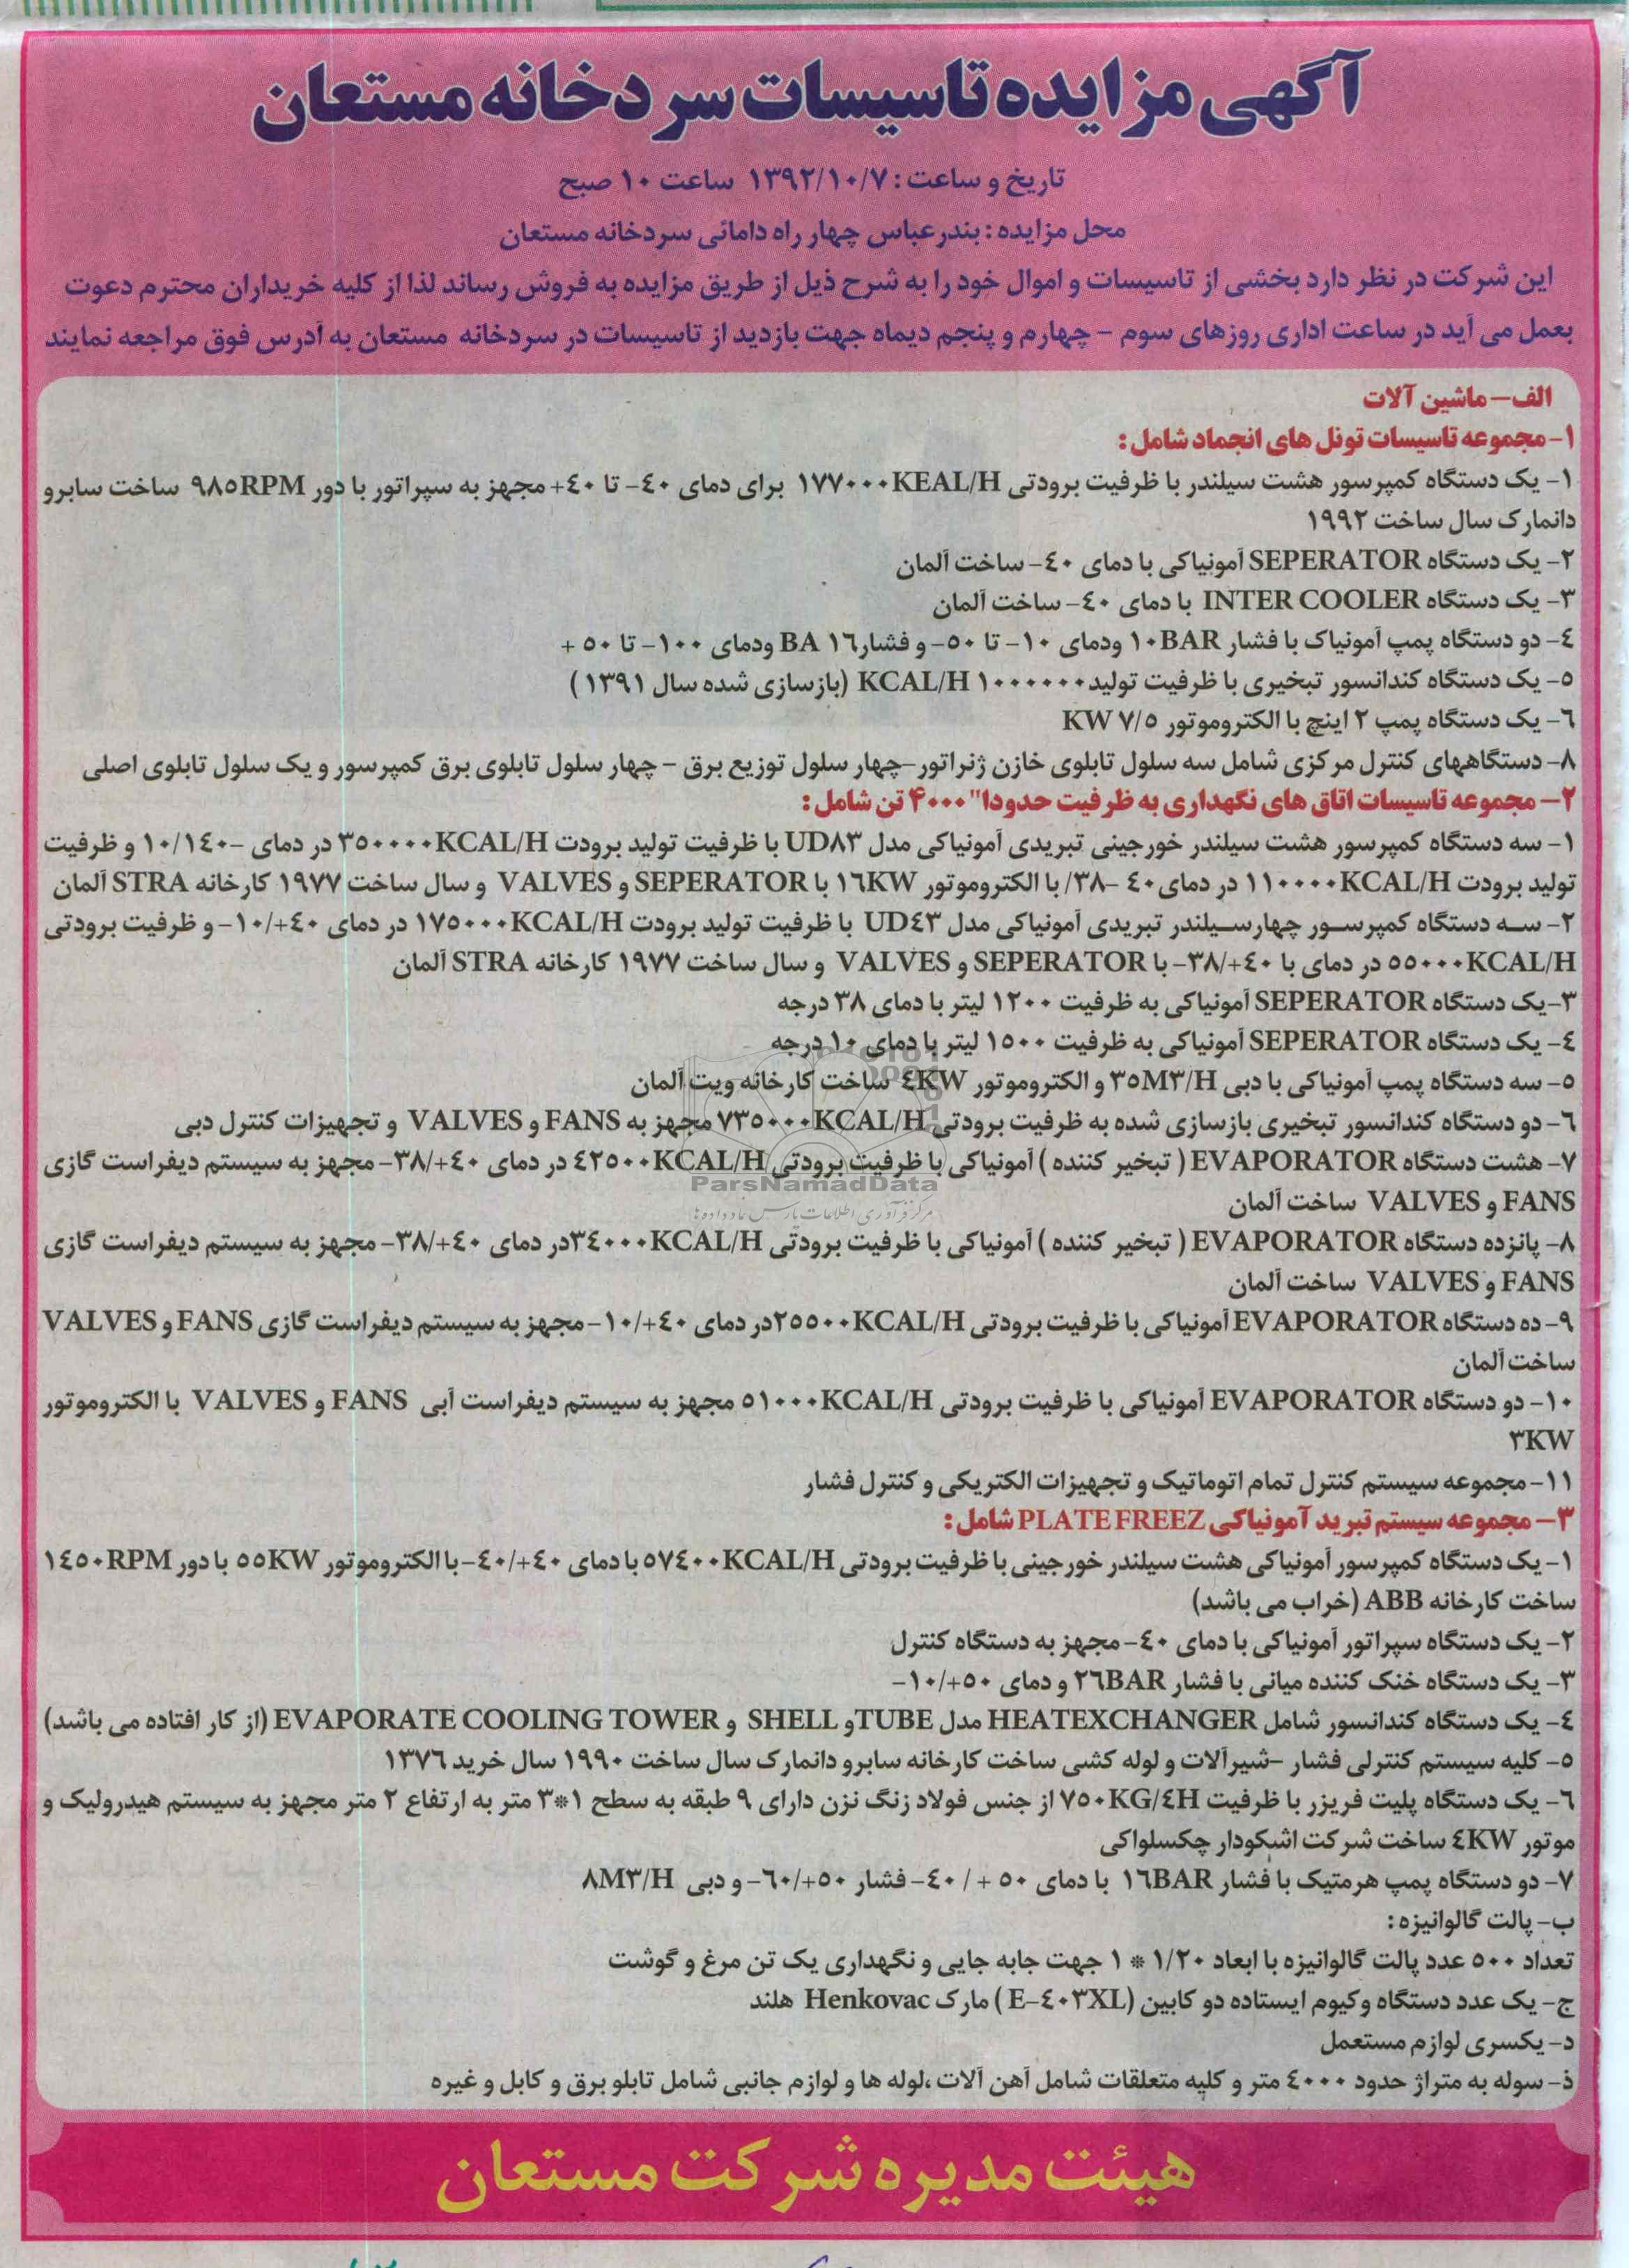 آگهی مزایده تاسیسات سردخانه مستعان
تاریخ و ساعت : ۱۳۹۲/۱۰/۷ ساعت ۱۰ صبح
محل مزایده : بندرعباس چهار راه دامائی سردخانه مستعان
این شرکت در نظر دارد بخشی از تاسیسات و اموال خود را به شرح ذیل از طریق مزایده به فروش رساند لذا از کلیه خریداران محترم دعوت
بعمل می آید در ساعت اداری روزهای سوم - چهارم و پنجم دیماه جهت بازدید از تاسیسات در سردخانه مستعان به آدرس فوق مراجعه نمایند
الف- ماشین آلات
۱- مجموعه تاسیسات تونل های انجماد شامل :
۱- یک دستگاه کمپرسور هشت سیلندر با ظرفیت برودتی ۱۷۷۰۰۰KEAL/H برای دمای ۴۰- تا ۴۰+ مجهز به سپراتور با دور ۹۸۵RPM ساخت سابرو
دانمارک سال ساخت ۱۹۹۲
۲- یک دستگاه SEPERATOR آمونیاکی با دمای ۴۰- ساخت آلمان
۳- یک دستگاه INTER COOLER با دمای ۴۰- ساخت آلمان
۴- دو دستگاه پمپ آمونیاک با فشار ۱۰BAR ودمای ۱۰- تا ۵۰- و فشار۱۶ BA ودمای ۱۰۰- تا ۵۰ +
۵- یک دستگاه کندانسور تبخیری با ظرفیت تولید۱۰۰۰۰۰۰ KCAL/H (بازسازی شده سال ۱۳۹۱ )
۶- یک دستگاه پمپ ۲ اینچ با الکتروموتور ۷/۵ KW
۸- دستگاههای کنترل مرکزی شامل سه سلول تابلوی خازن ژنراتور-چهار سلول توزیع برق - چهار سلول تابلوی برق کمپرسور و یک سلول تابلوی اصلی
۲- مجموعه تاسیسات اتاق های نگهداری به ظرفیت حدودا" ۴۰۰۰ تن شامل :
۱- سه دستگاه کمپرسور هشت سیلندر خورجینی تبریدی آمونیاکی مدل UD۸۳ با ظرفیت تولید برودت ۳۵۰۰۰۰KCAL/H در دمای -۱۰/۱۴۰ و ظرفیت
تولید برودت ۱۱۰۰۰۰KCAL/H در دمای۴۰ -۳۸/ با الکتروموتور ۱۶KW با SEPERATOR و VALVES و سال ساخت ۱۹۷۷ کارخانه STRA آلمان
۲- سه دستگاه کمپرسور چهارسیلندر تبریدی آمونیاکی مدل UD۴۳ با ظرفیت تولید برودت ۱۷۵۰۰۰KCAL/H در دمای ۴۰+/۱۰- و ظرفیت برودتی
۵۵۰۰۰KCAL/H در دمای با ۴۰+/۳۸- با SEPERATOR و VALVES و سال ساخت ۱۹۷۷ کارخانه STRA آلمان
۳-یک دستگاه SEPERATOR آمونیاکی به ظرفیت ۱۲۰۰ لیتر با دمای ۳۸ درجه
۴- یک دستگاه SEPERATOR آمونیاکی به ظرفیت ۱۵۰۰ لیتر با دمای ۱۰ درجه
۵- سه دستگاه پمپ آمونیاکی با دبی ۳۵M۳/H و الکتروموتور ۴KW ساخت کارخانه ویت آلمان
۶- دو دستگاه کندانسور تبخیری بازسازی شده به ظرفیت برودتی ۷۳۵۰۰۰KCAL/H مجهز به FANS و VALVES و تجهیزات کنترل دبی
۷- هشت دستگاه EVAPORATOR ( تبخیر کننده ) آمونیاکی با ظرفیت برودتی ۴۲۵۰۰KCAL/H در دمای ۴۰+/۳۸- مجهز به سیستم دیفراست گازی
FANS و VALVES ساخت آلمان
۸- پانزده دستگاه EVAPORATOR ( تبخیر کننده ) آمونیاکی با ظرفیت برودتی ۳۴۰۰۰KCAL/H در دمای ۴۰+/۳۸- مجهز به سیستم دیفراست گازی
FANS و VALVES ساخت آلمان
۹- ده دستگاه EVAPORATOR آمونیاکی با ظرفیت برودتی ۲۵۵۰۰KCAL/H در دمای ۴۰+/۱۰- مجهز به سیستم دیفراست گازی FANS و VALVES
ساخت آلمان
۱۰- دو دستگاه EVAPORATOR آمونیاکی با ظرفیت برودتی ۵۱۰۰۰KCAL/H مجهز به سیستم دیفراست آبی FANS و VALVES با الکتروموتور
۳KW
۱۱- مجموعه سیستم کنترل تمام اتوماتیک و تجهیزات الکتریکی و کنترل فشار
۳- مجموعه سیستم تبرید آمونیاکی PLATE FREEZ شامل :
۱- یک دستگاه کمپرسور آمونیاکی هشت سیلندر خورجینی با ظرفیت برودتی ۵۷۴۰۰KCAL/H با دمای ۴۰+/۴۰- با الکتروموتور ۵۵KW با دور ۱۴۵۰RPM
ساخت کارخانه ABB (خراب می باشد)
۲- یک دستگاه سپراتور آمونیاکی با دمای ۴۰- مجهز به دستگاه کنترل
۳- یک دستگاه خنک کننده میانی با فشار ۲۶BAR و دمای ۵۰+/۱۰-
۴- یک دستگاه کندانسور شامل HEATEXCHANGER مدل TUBEو SHELL و EVAPORATE COOLING TOWER (از کار افتاده می باشد)
۵- کلیه سیستم کنترلی فشار -شیرآلات و لوله کشی ساخت کارخانه سابرو دانمارک سال ساخت ۱۹۹۰ سال خرید ۱۳۷۶
۶- یک دستگاه پلیت فریزر با ظرفیت ۷۵۰KG/۴H از جنس فولاد زنگ نزن دارای ۹ طبقه به سطح ۱*۳ متر به ارتفاع ۲ متر مجهز به سیستم هیدرولیک و
موتور ۴KW ساخت شرکت اشکودار چکسلواکی
۷- دو دستگاه پمپ هرمتیک با فشار ۱۶BAR با دمای ۵۰ + / ۴۰- فشار ۵۰+/۶۰- و دبی ۸M۳/H
ب- پالت گالوانیزه :
تعداد ۵۰۰ عدد پالت گالوانیزه با ابعاد ۱/۲۰ * ۱ جهت جابه جایی و نگهداری یک تن مرغ و گوشت
ج- یک عدد دستگاه وکیوم ایستاده دو کابین (E-۴۰۳XL ) مارک Henkovac هلند
د- یکسری لوازم مستعمل
ذ- سوله به متراژ حدود ۴۰۰۰ متر و کلیه متعلقات شامل آهن آلات ،لوله ها و لوازم جانبی شامل تابلو برق و کابل و غیره
هیئت مدیره شرکت مستعان
ParsNamadData
مرکز فرآوری اطلاعات پارس نماد داده ها